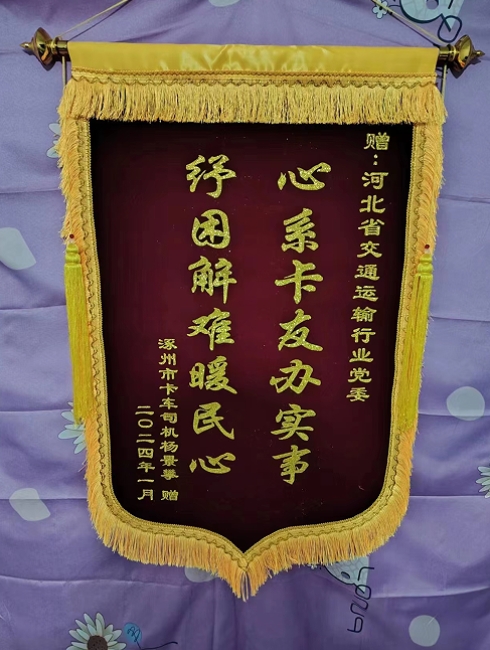 赠:河北省交通运输行业党委
心系卡友办实事
纾困解难暖民心
涿州市卡车司机杨景攀 赠
二〇二四年一月